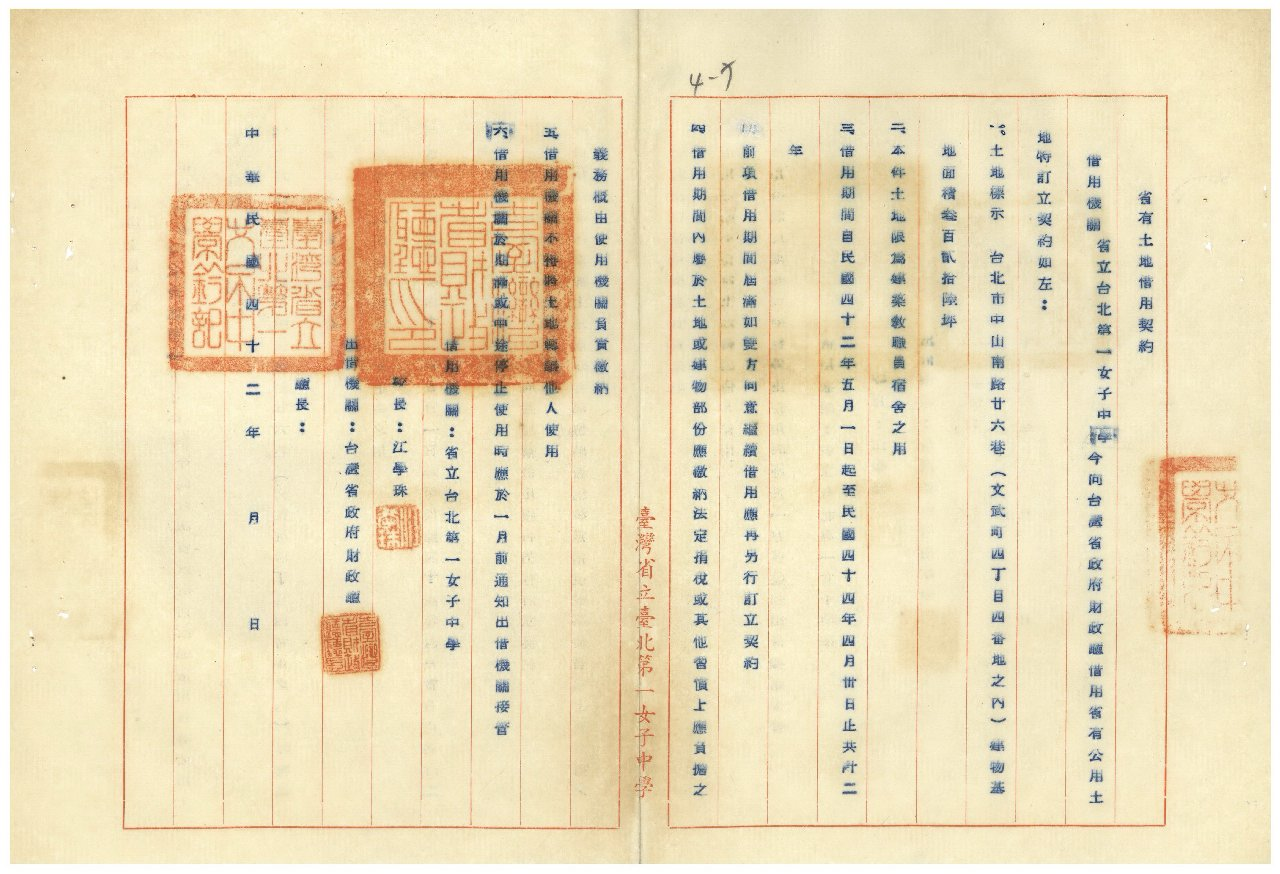 4-
省有土地借用契約
借用機關 省立台北第一女子中學今向台灣省政府財政廳借用省有公用土
地特訂立契約如左：
一、土地標示 台北市中山南路廿六巷（文武町四丁目四番地之內）建物基
地面積叁百貳拾陸坪
二、本件土地限為建築教職員宿舍之用
三、借用期間自民國四十二年五月一日起至民國四十四年四月卅日止共計二
年
前項借用期間屆滿如雙方同意繼續借用應再另行訂立契約
四、借用期間內麼於土地或建物部份應繳納法定捐稅或其他習慣上應負擔之
義務概由使用機關負責繳納
五、借用機關不得將土地轉讓他人使用
六、借用機關於期滿或中途停止使用時應於一月前通知出借機關接管
借用機關：省立台北第一女子中學
校長：江學珠
出借機關：台灣省政府財政廳
廳長：
中華民國四十二年 月 日
臺灣省立臺北第一女子中學